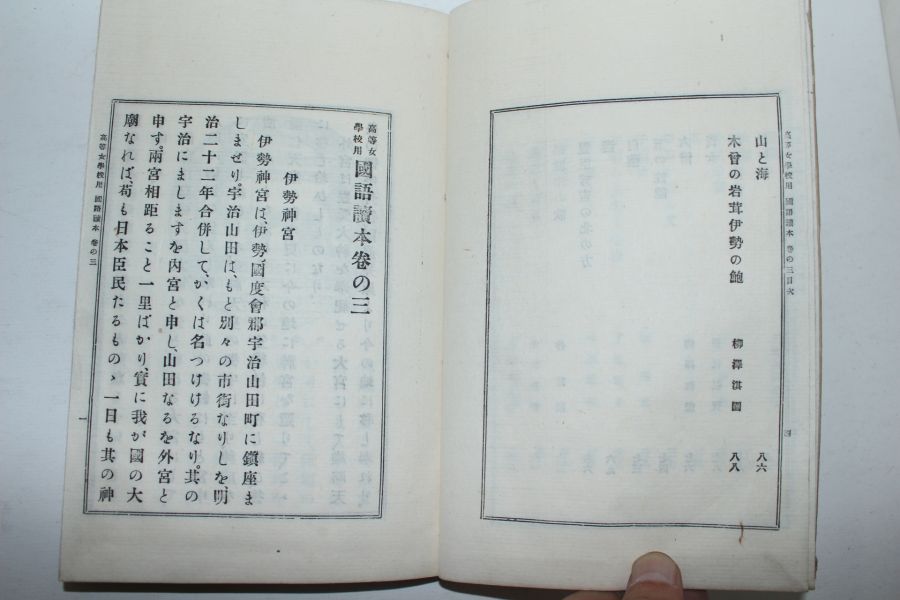 高等女學校用 國語讀本 卷の三目次
山と海 八六
木曾の岩茸伊勢の鮑 柳澤淇園 八八
四
高等女學校用 國語讀本卷の三
伊勢神宮
伊勢神宮は、伊勢國度會郡宇治山田町に鎭座ま
しませり。宇治山田は、もと別々の市街なりしを、明
治二十二年合併して、かくは名つけけるなり。其の
宇治にましますを內宮と申し、山田なるを外宮と
申す。兩宮相距ること一里ばかり、實に我が國の大
廟なれば、苟も日本臣民たるものゝ一日も其の神
高等女學校用 國語讀本 卷の三
一